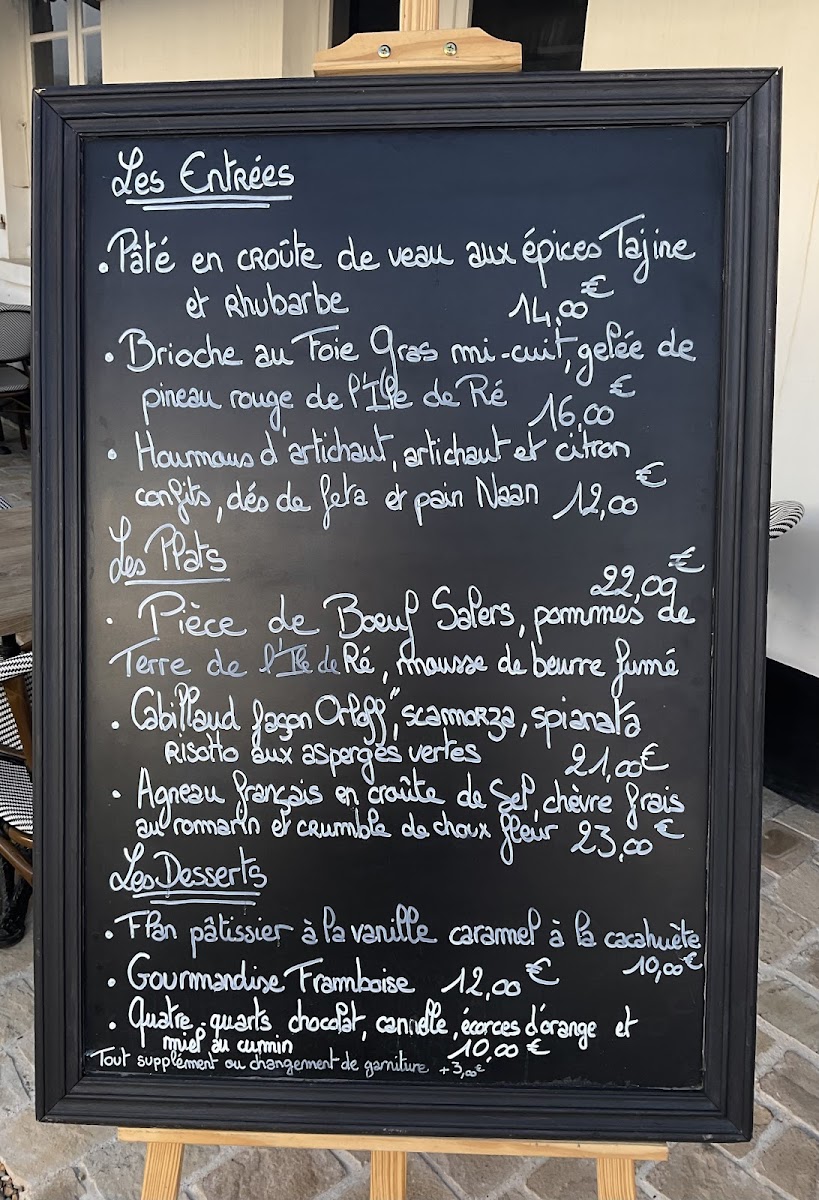 Les Entrées
• Pâté en croûte de veau aux épices Tajine
et Rhubarbe 14,00€
• Brioche au Foie Gras mi-cuit, gelée de
pineau rouge de l'Ile de Ré 16,00€
• Houmous d'artichaut, artichaut et citron
confits, dés de feta et pain Naan 12,00€
Les Plats
22,00€
• Pièce de Boeuf Salers, pommes de
Terre de l'Ile de Ré, mousse de beurre fumé
• Cabillaud façon Orloff", scamorza, spianata
Risotto aux asperges vertes 21,00€
• Agneau français en croûte de Sel, chèvre frais
au romarin et crumble de choux fleur 23,00€
Les Desserts
• Flan pâtissier à la vanille caramel à la cacahuète
10,00€
• Gourmandise Framboise 12,00€
• Quatre quarts chocolat, cannelle, écorces d'orange et
miel au cumin 10,00€
Tout supplément ou changement de garniture +3,00€